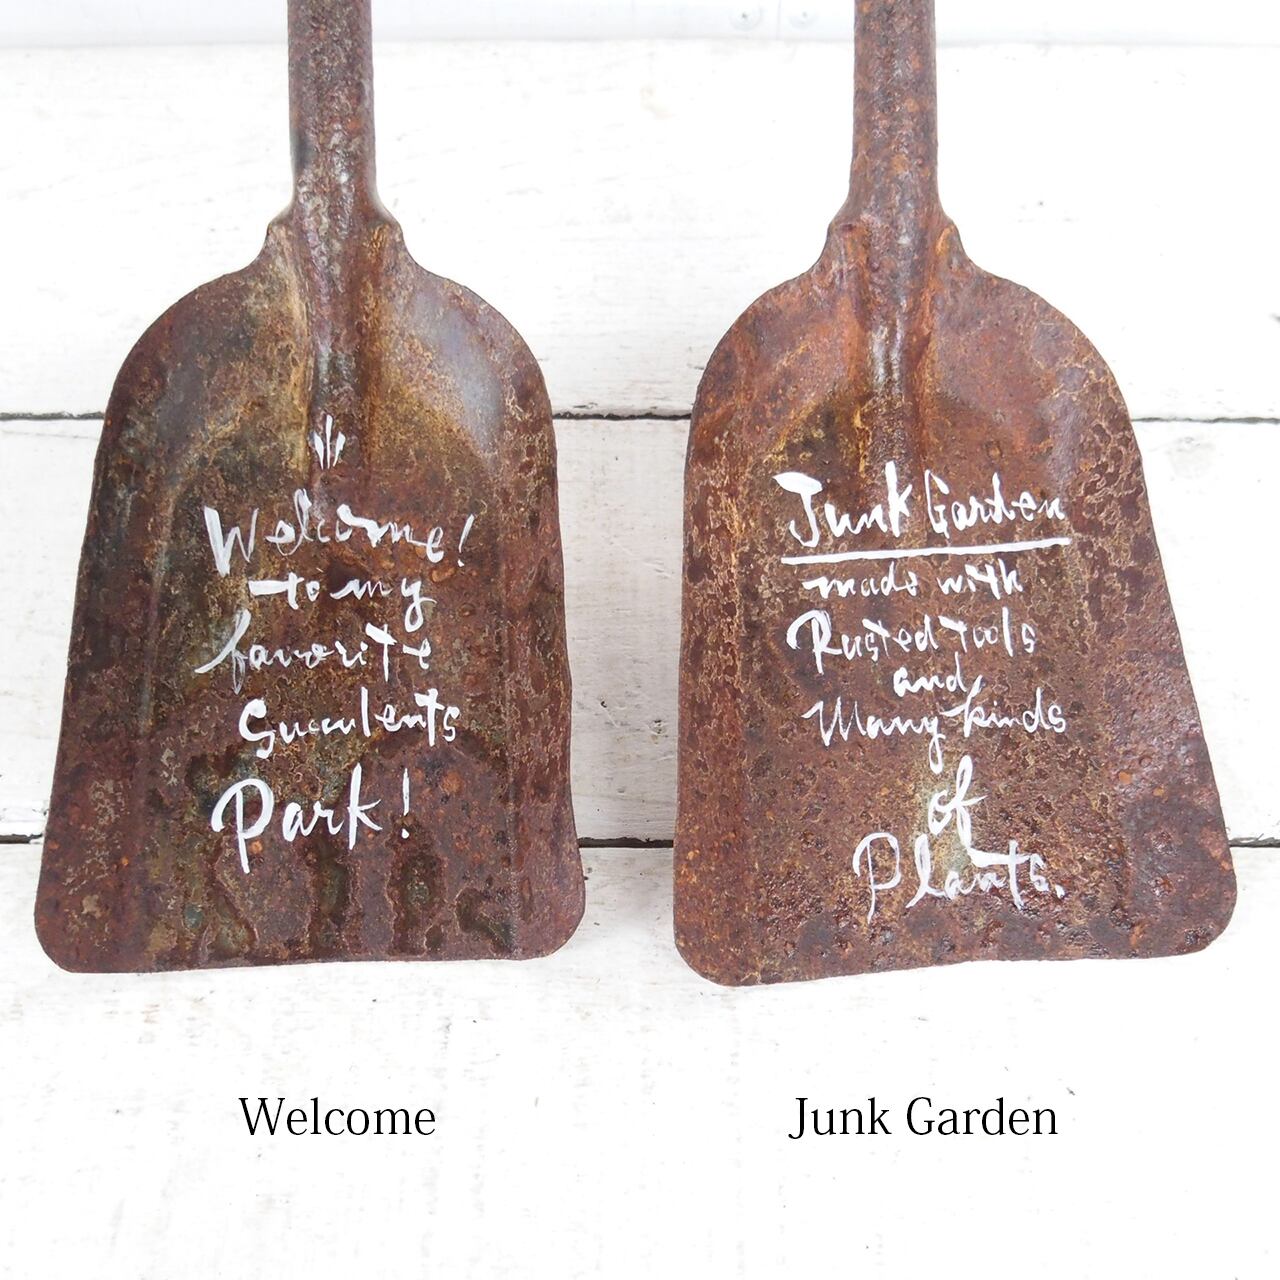 Welcome!
to my
favorite
Succulents
Park!
Junk Garden
made with
Rusted tools
and
Many kinds
of
Plants.
Welcome
Junk Garden